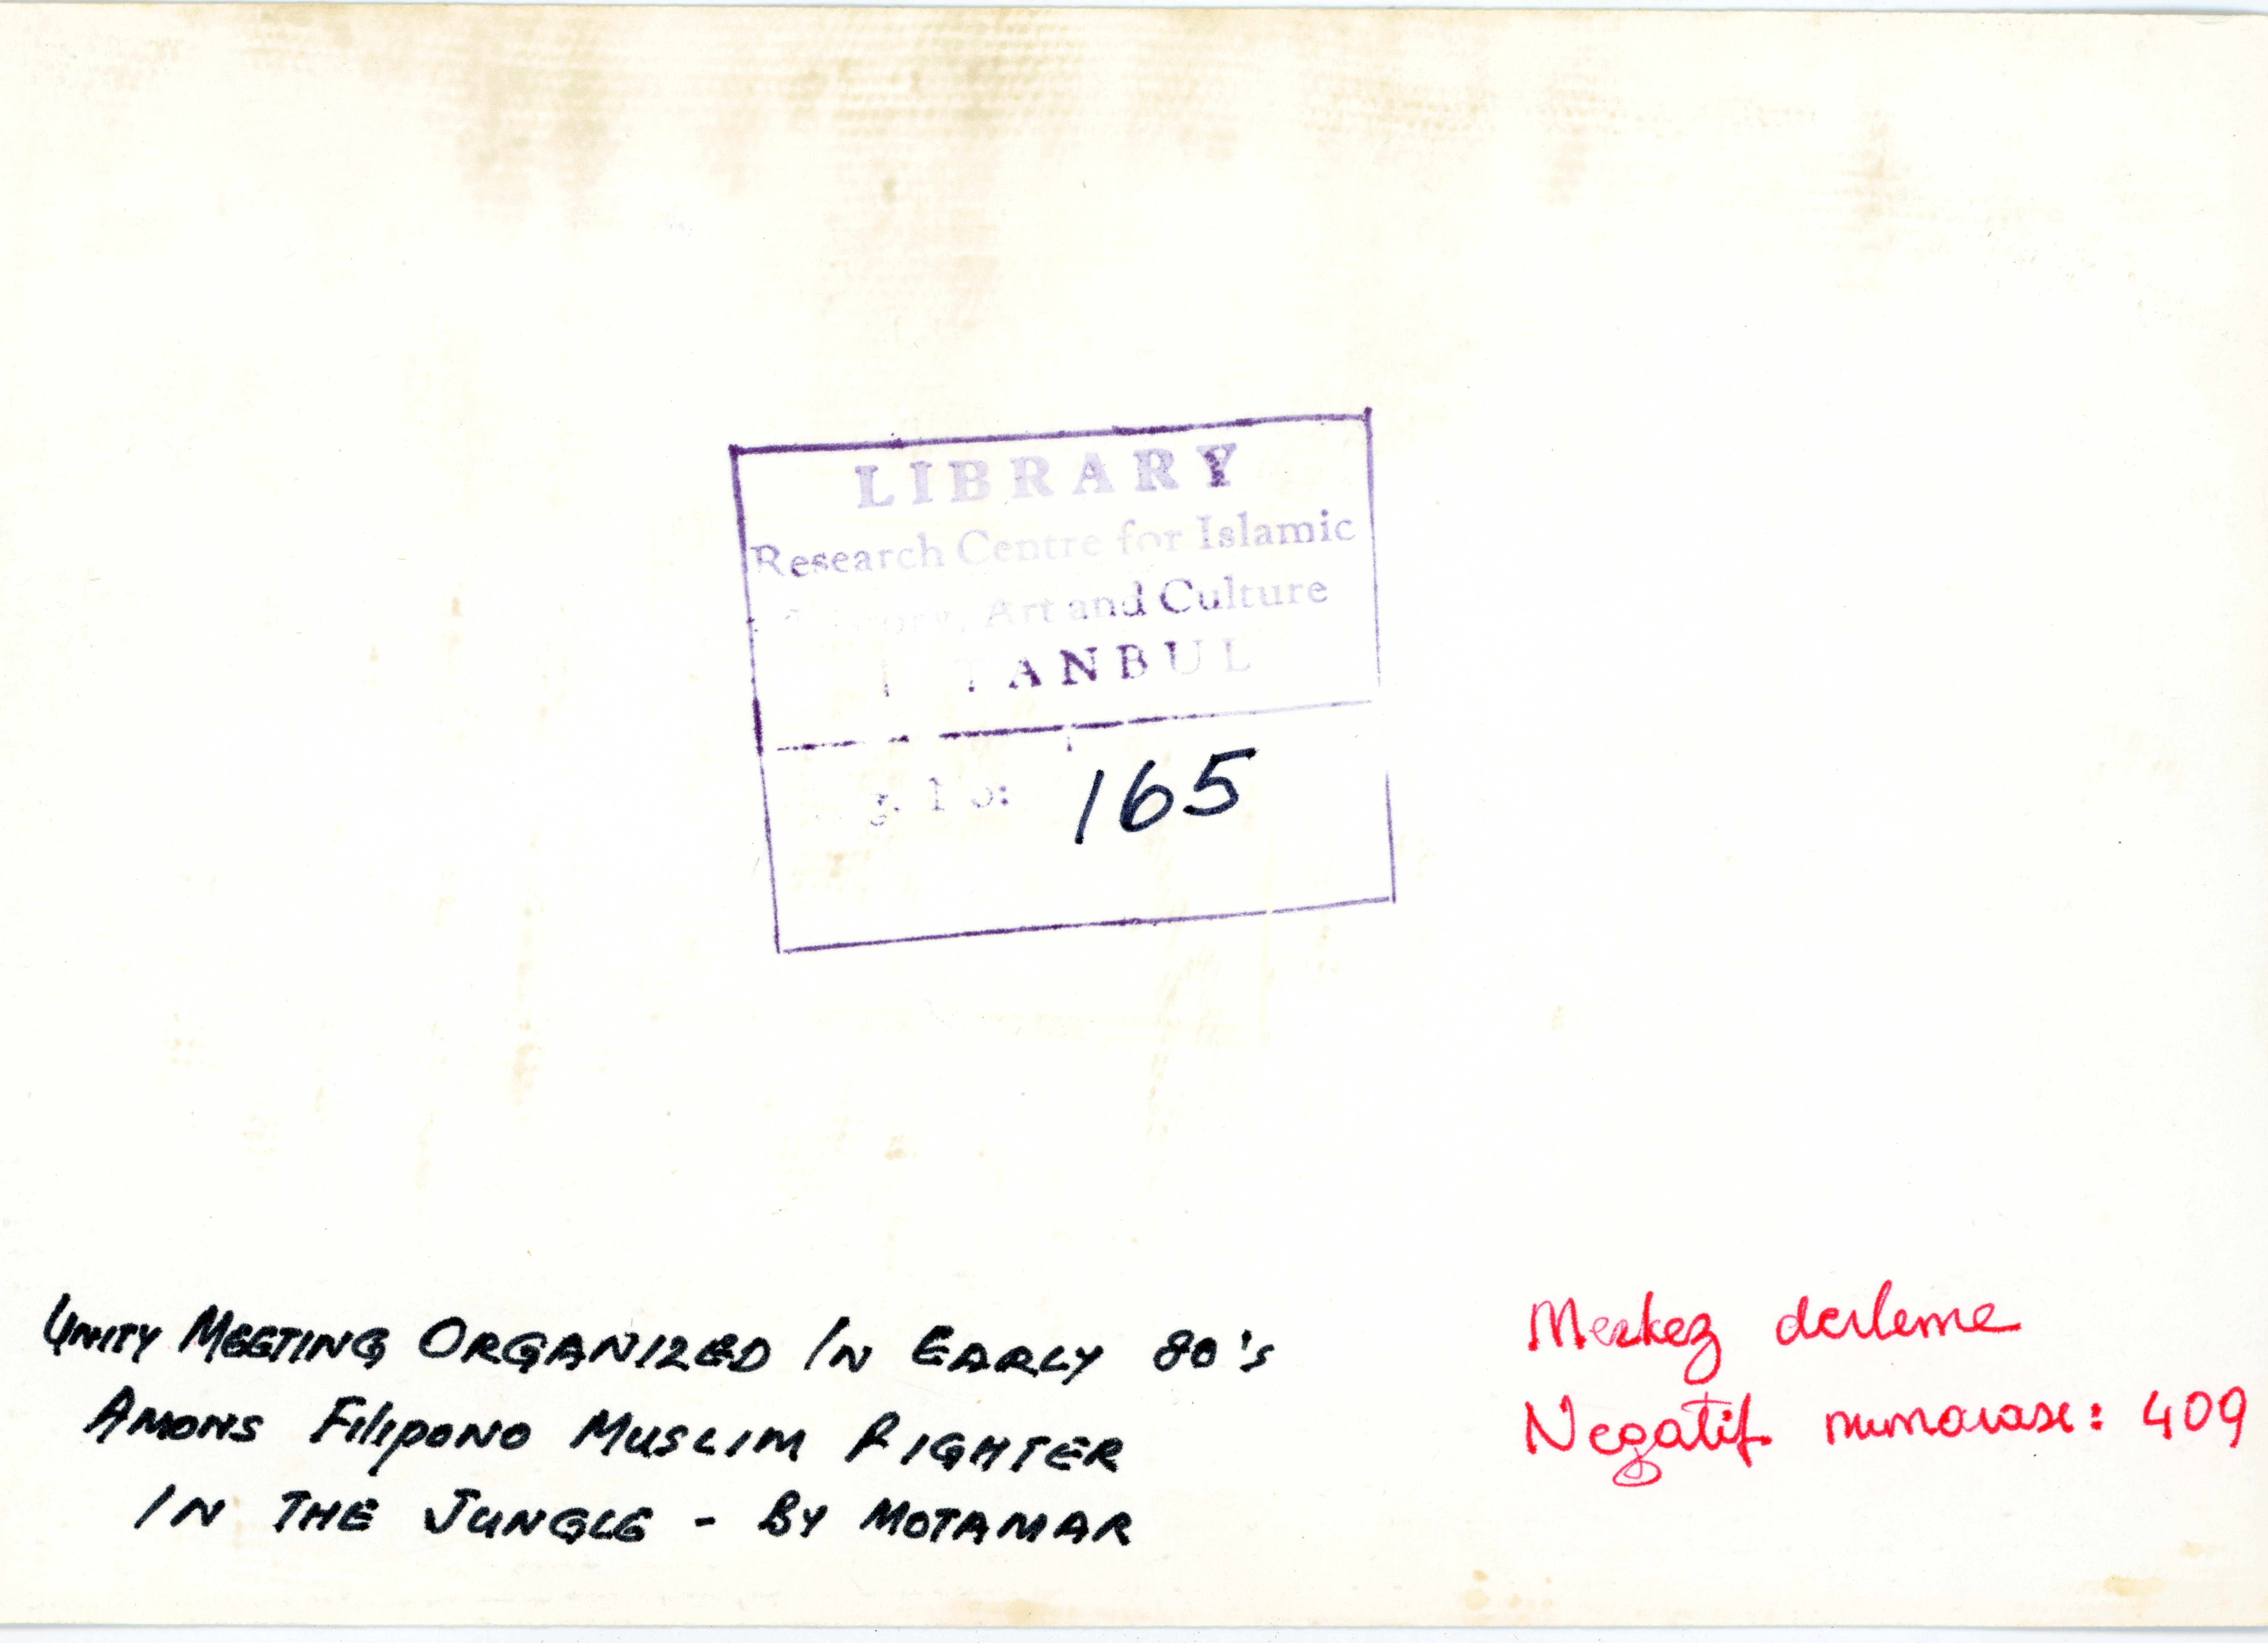 LIBRARY
Research Centre for Islamic
Art and Culture
TANBUL
165
UNITY MEETING ORGANIZED IN EARLY 80's
AMONS FILIPONO MUSLIM FIGHTER
IN THE JUNGLE - BY MOTAMAR
Merkez derleme
Negatif numarası: 409